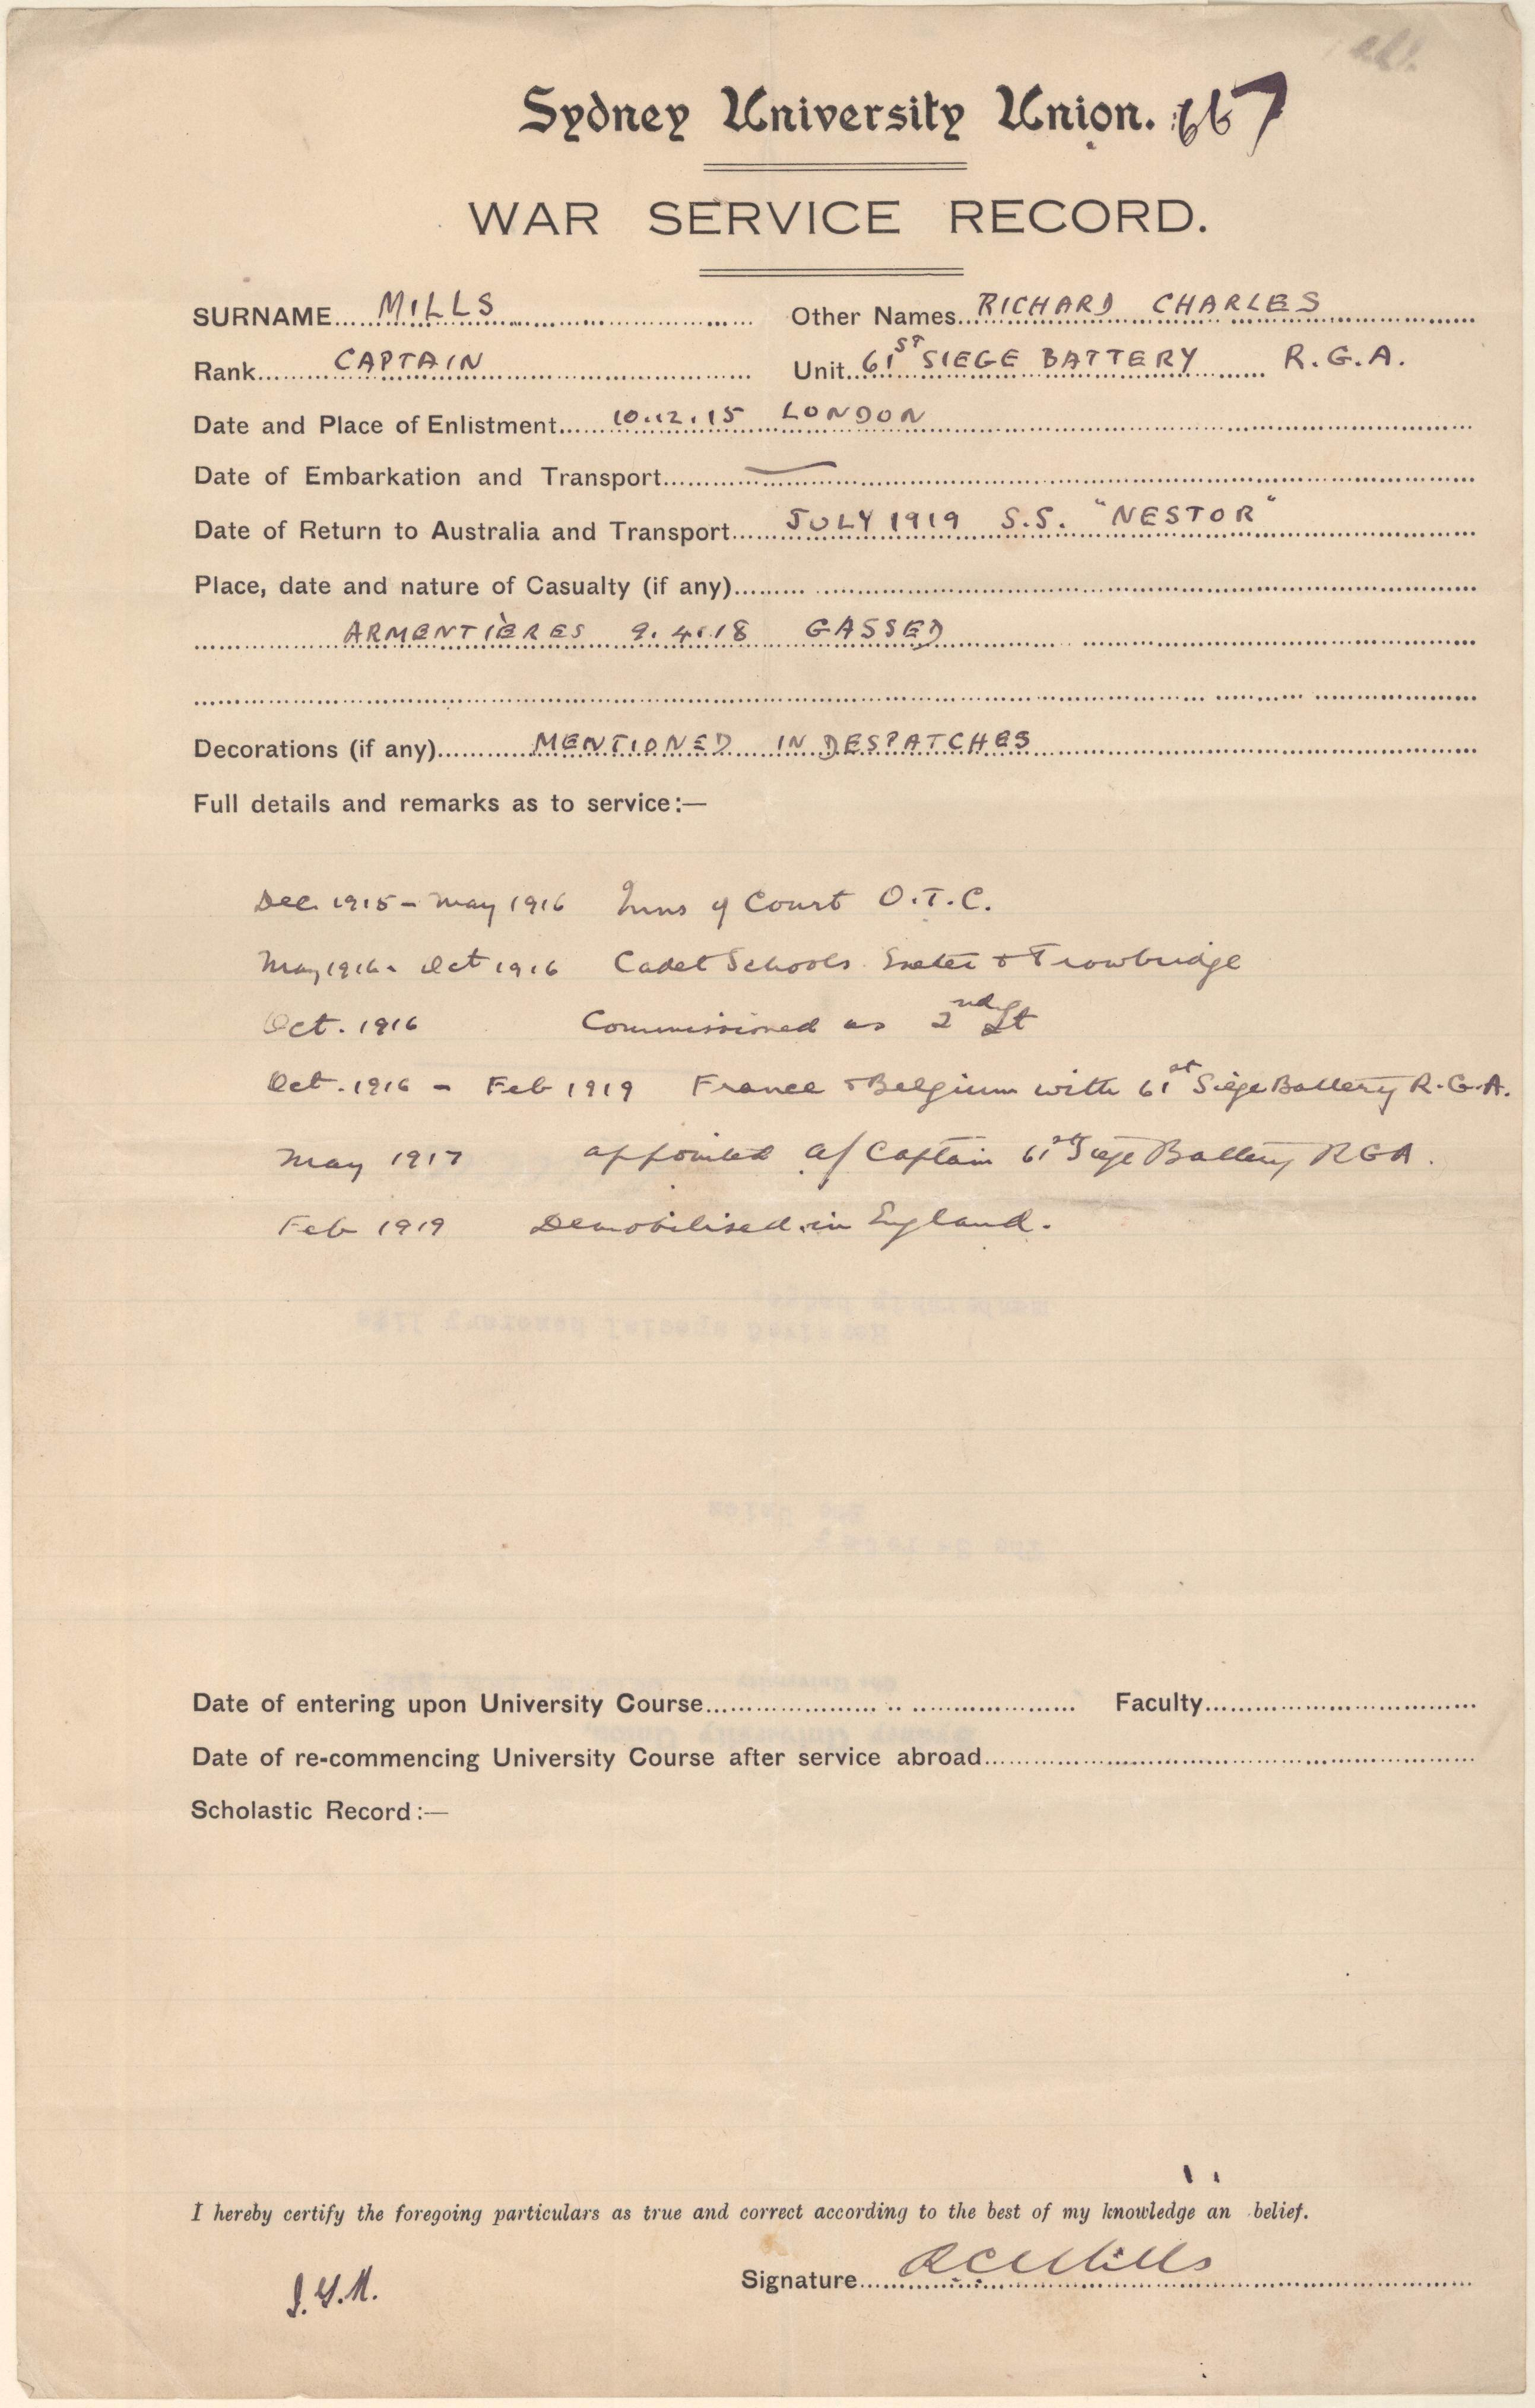 Sydney University Union. 667
WAR SERVICE RECORD.
SURNAME MILLS Other Names RICHARD CHARLES
Rank CAPTAIN Unit 61ST SIEGE BATTERY R.G.A.
Date and Place of Enlistment 10.12.15 LONDON
Date of Embarkation and Transport —
Date of Return to Australia and Transport JULY 1919 S.S. "NESTOR"
Place, date and nature of Casualty (if any)
ARMENTIÈRES 9.4.18 GASSED
Decorations (if any) MENTIONED IN DESPATCHES
Full details and remarks as to service:—
Dec. 1915 – May 1916 Inns of Court O.T.C.
May 1916 - Oct 1916 Cadet Schools Exeter & Trowbridge
Oct. 1916 Commissioned as 2nd Lt
Oct. 1916 – Feb 1919 France & Belgium with 61st Siege Battery R.G.A.
May 1917 appointed a/ Captain 61st Siege Battery RGA.
Feb 1919 Demobilised in England.
Date of entering upon University Course Faculty
Date of re-commencing University Course after service abroad
Scholastic Record:—
I hereby certify the foregoing particulars as true and correct according to the best of my knowledge an belief.
Signature R C Mills